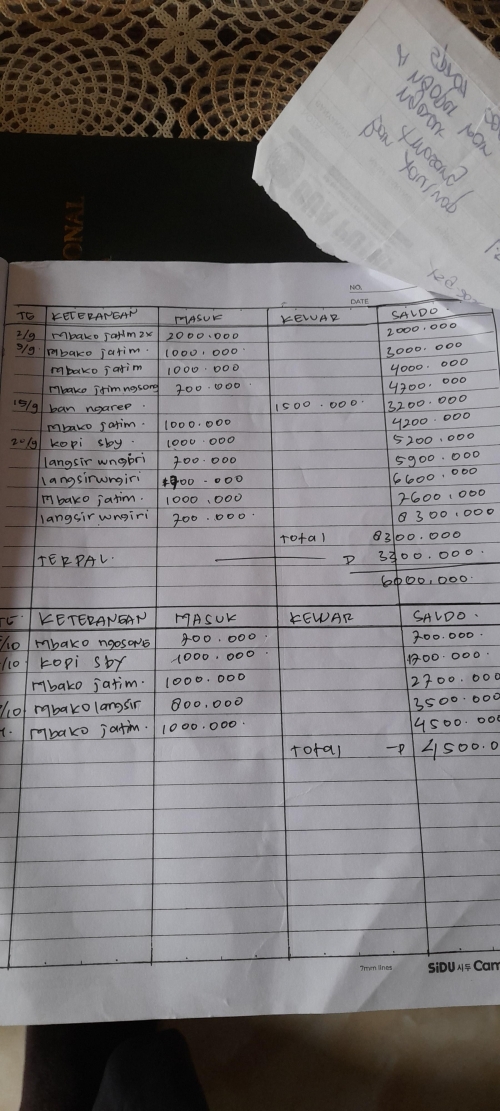 ONAL
NO.
DATE
TG KETERANGAN MASUK KELUAR SALDO
2/9 Mbako jatim 2x 2000.000 2000.000
5/9 Mbako jatim. 1000.000 3000.000
Mbako jatim 1000.000 4000.000
Mbako jtim ngsong 700.000 4700.000
15/9 ban ngarep. 1500.000. 3200.000
Mbako jatim. 1000.000 4200.000
20/9 kopi sby 1000.000 5200.000
langsir wngiri 700.000 5900.000
langsir wngiri 700.000 6600.000
Mbako jatim. 1000.000 7600.000
langsir wngiri 700.000. 8300.000
total 8300.000
TERPAL. 3300.000.
6000.000.
KETERANGAN MASUK KELUAR SALDO.
/10 Mbako ngosong 700.000 700.000.
/10 kopi sby 1000.000 1700.000.
Mbako jatim. 1000.000 2700.000
/10 Mbako langsir 800.000 3500.000
Mbako jatim. 1000.000. 4500.000
total → 4500.0
7mm lines SiDU 시두 Cam